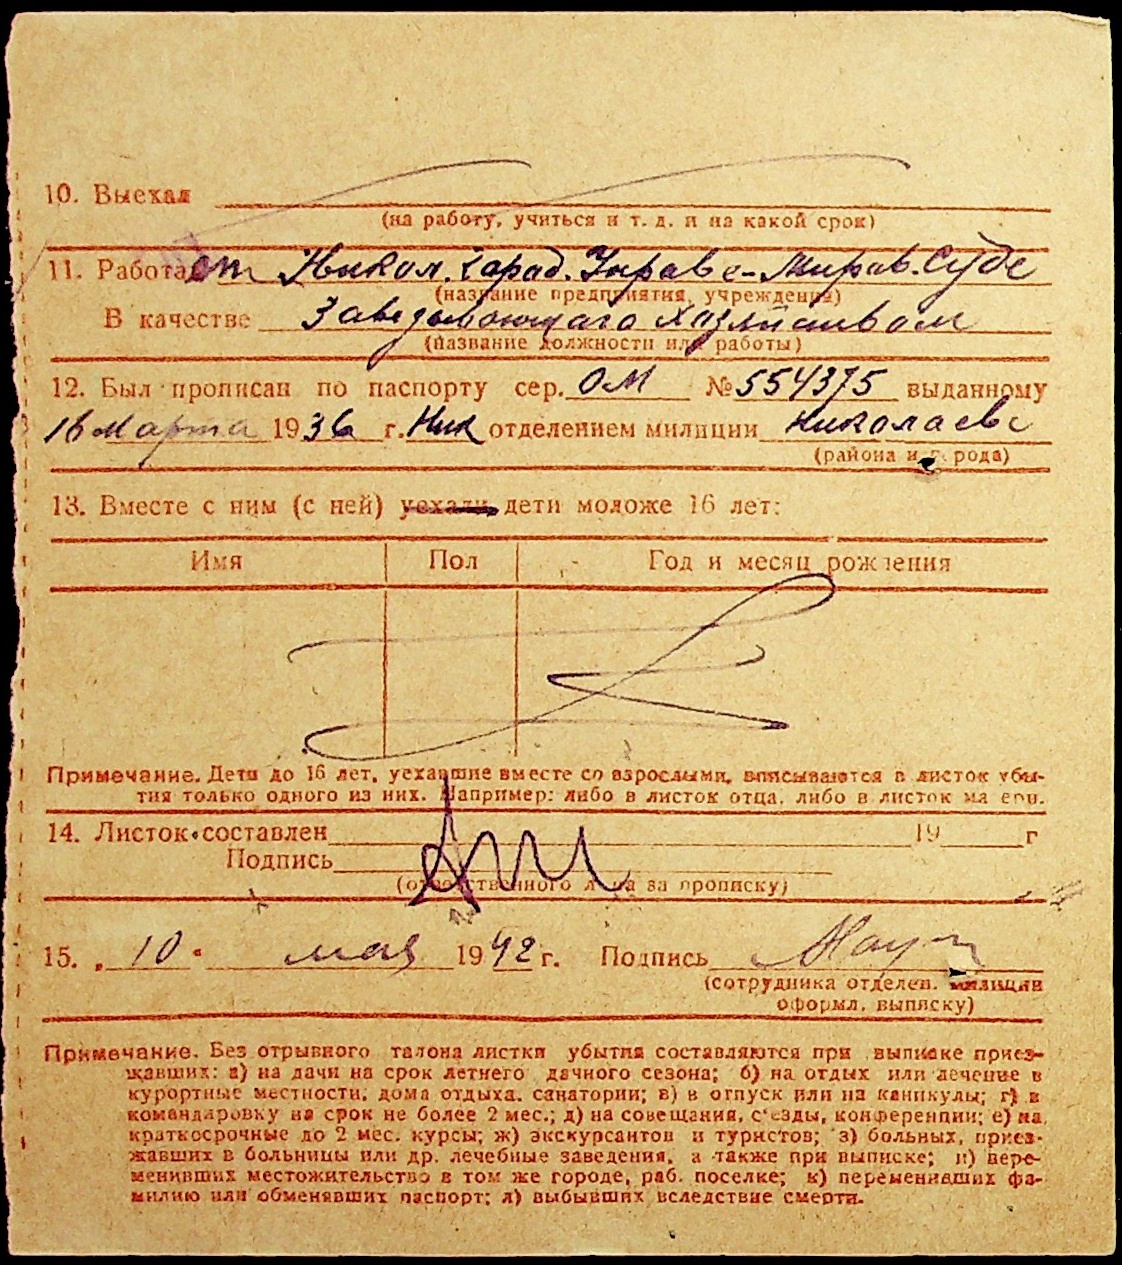 10. Выехал
(на работу, учиться и т. д. и на какой срок)
11. Работает Никол. Город. Управе - Миров. Суде
(название предприятия, учреждения)
В качестве Заведывающаго Хозяйством
(название должности или работы)
12. Был прописан по паспорту сер. ОМ № 554375 выданному
16 Марта 1936 г. Ник отделением милиции Николаеве
(района и города)
13. Вместе с ним (с ней) уехали дети моложе 16 лет:
Имя Пол Год и месяц рождения
Примечание. Дети до 16 лет, уехавшие вместе со взрослыми, вписываются в листок убы-
тия только одного из них. Например: либо в листок отца, либо в листок матери.
14. Листок составлен 19 г
Подпись
(ответственного лица за прописку)
15. „ 10 " мая 1942 г. Подпись
(сотрудника отделен. милиции
оформл. выписку)
Примечание. Без отрывного талона листки убытия составляются при выписке приез-
жавших: а) на дачи на срок летнего дачного сезона; б) на отдых или лечение в
курортные местности, дома отдыха, санатории; в) в отпуск или на каникулы; г) в
командировку на срок не более 2 мес.; д) на совещания, съезды, конференции; е) на
краткосрочные до 2 мес. курсы; ж) экскурсантов и туристов; з) больных, приез-
жавших в больницы или др. лечебные заведения, а также при выписке; и) пере-
менивших местожительство в том же городе, раб. поселке; к) переменивших фа-
милию или обменявших паспорт; л) выбывших вследствие смерти.